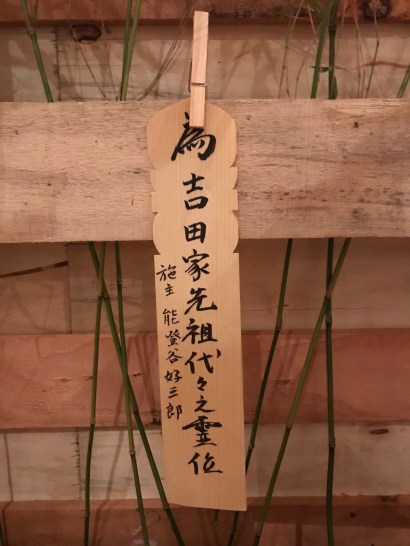 為吉田家先祖代々之霊位
施主 能登谷好三郎